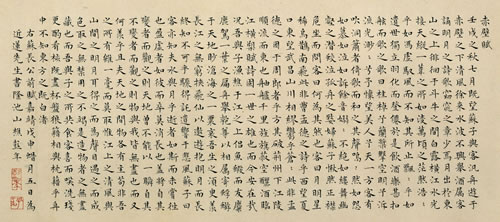 赤壁賦
壬戌之秋七月既望蘇子與客汎舟遊于
赤壁之下清風徐來水波不興舉酒屬客
誦明月之詩歌窈窕之章少焉月出於東
山之上徘徊於斗牛之間白露橫江水光
接天縱一葦之所如凌萬頃之茫然浩浩
乎如馮虛御風而不知其所止飄飄乎如
遺世獨立羽化而登僊於是飲酒樂甚扣
舷而歌之歌曰桂棹兮蘭槳擊空明兮泝
流光渺渺兮予懷望美人兮天一方客有
吹洞簫者倚歌而和之其聲嗚嗚然如怨
如慕如泣如訴餘音嫋嫋不絕如縷舞幽
壑之潛蛟泣孤舟之嫠婦蘇子愀然正襟
危坐而問客曰何為其然也客曰月明星
稀烏鵲南飛此非曹孟德之詩乎西望夏
口東望武昌山川相繆鬱乎蒼蒼此非孟
德之困於周郎者乎方其破荊州下江陵
順流而東也舳艫千里旌旗蔽空釃酒臨
江橫槊賦詩固一世之雄也而今安在哉
況吾與子漁樵於江渚之上侶魚蝦而友
麋鹿駕一葉之扁舟舉匏尊以相屬寄蜉蝣
於天地眇滄海之一粟哀吾生之須臾羨
長江之無窮挾飛仙以遨遊抱明月而長
終知不可乎驟得託遺響於悲風蘇子曰
客亦知夫水與月乎逝者如斯而未嘗往
也盈虛者如彼而卒莫消長也蓋將自其
變者而觀之則天地曾不能以一瞬自其
不變者而觀之則物與我皆無盡也而又
何羨乎且夫天地之間物各有主苟非吾
之所有雖一毫而莫取惟江上之清風與
山間之明月耳得之而為聲目遇之而成
色取之無禁用之不竭是造物者之無盡
藏也而吾與子之所共食客喜而笑洗盞
更酌肴核既盡杯盤狼籍相與枕藉乎舟
中不知東方之既白
右蘇長公前赤壁賦嘉靖戊申臘月五日為
近蓮先生書隆池山樵彭年